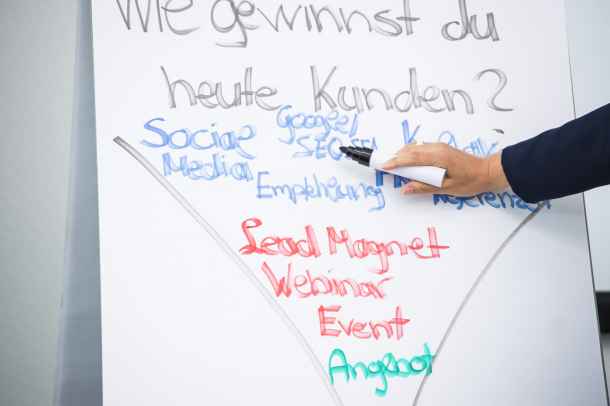 Wie gewinnst du
heute Kunden?
Google/
Social SEO
Media
Empfehlung Referenzen
Lead Magnet
Webinar
Event
Angebot